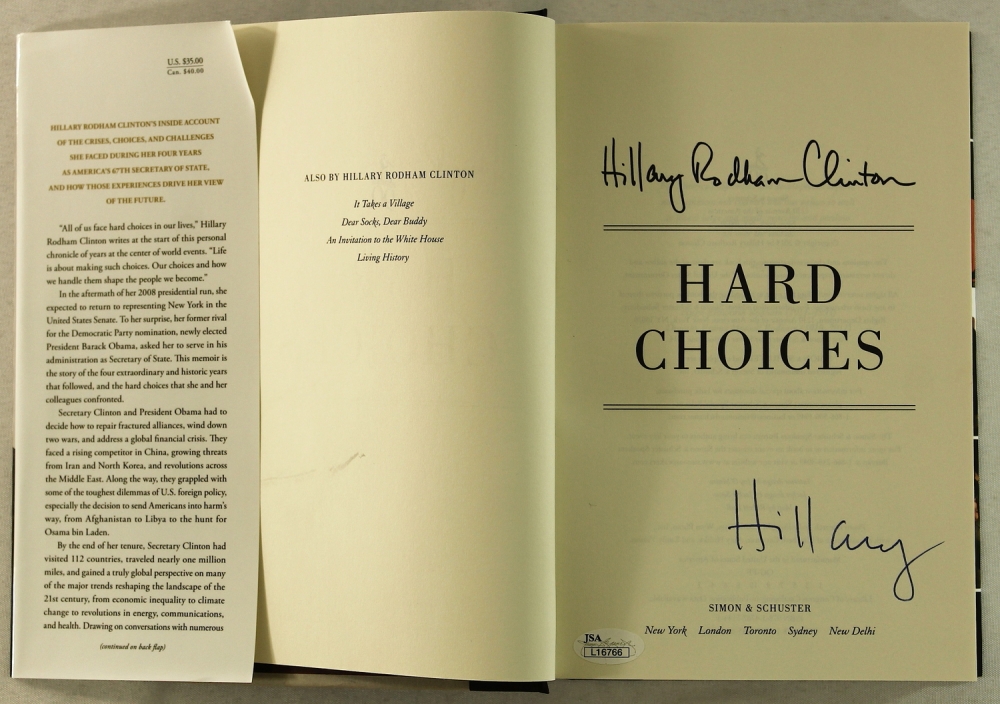 U.S. $35.00
Can. $40.00
HILLARY RODHAM CLINTON'S INSIDE ACCOUNT
OF THE CRISES, CHOICES, AND CHALLENGES
SHE FACED DURING HER FOUR YEARS
AS AMERICA'S 67TH SECRETARY OF STATE,
AND HOW THOSE EXPERIENCES DRIVE HER VIEW
OF THE FUTURE.
"All of us face hard choices in our lives," Hillary
Rodham Clinton writes at the start of this personal
chronicle of years at the center of world events. "Life
is about making such choices. Our choices and how
we handle them shape the people we become."
In the aftermath of her 2008 presidential run, she
expected to return to representing New York in the
United States Senate. To her surprise, her former rival
for the Democratic Party nomination, newly elected
President Barack Obama, asked her to serve in his
administration as Secretary of State. This memoir is
the story of the four extraordinary and historic years
that followed, and the hard choices that she and her
colleagues confronted.
Secretary Clinton and President Obama had to
decide how to repair fractured alliances, wind down
two wars, and address a global financial crisis. They
faced a rising competitor in China, growing threats
from Iran and North Korea, and revolutions across
the Middle East. Along the way, they grappled with
some of the toughest dilemmas of U.S. foreign policy,
especially the decision to send Americans into harm's
way, from Afghanistan to Libya to the hunt for
Osama bin Laden.
By the end of her tenure, Secretary Clinton had
visited 112 countries, traveled nearly one million
miles, and gained a truly global perspective on many
of the major trends reshaping the landscape of the
21st century, from economic inequality to climate
change to revolutions in energy, communications,
and health. Drawing on conversations with numerous
(continued on back flap)
ALSO BY HILLARY RODHAM CLINTON
It Takes a Village
Dear Socks, Dear Buddy
An Invitation to the White House
Living History
Hillary Rodham Clinton
HARD
CHOICES
Hillary
SIMON & SCHUSTER
New York London Toronto Sydney New Delhi
JSA
L16766